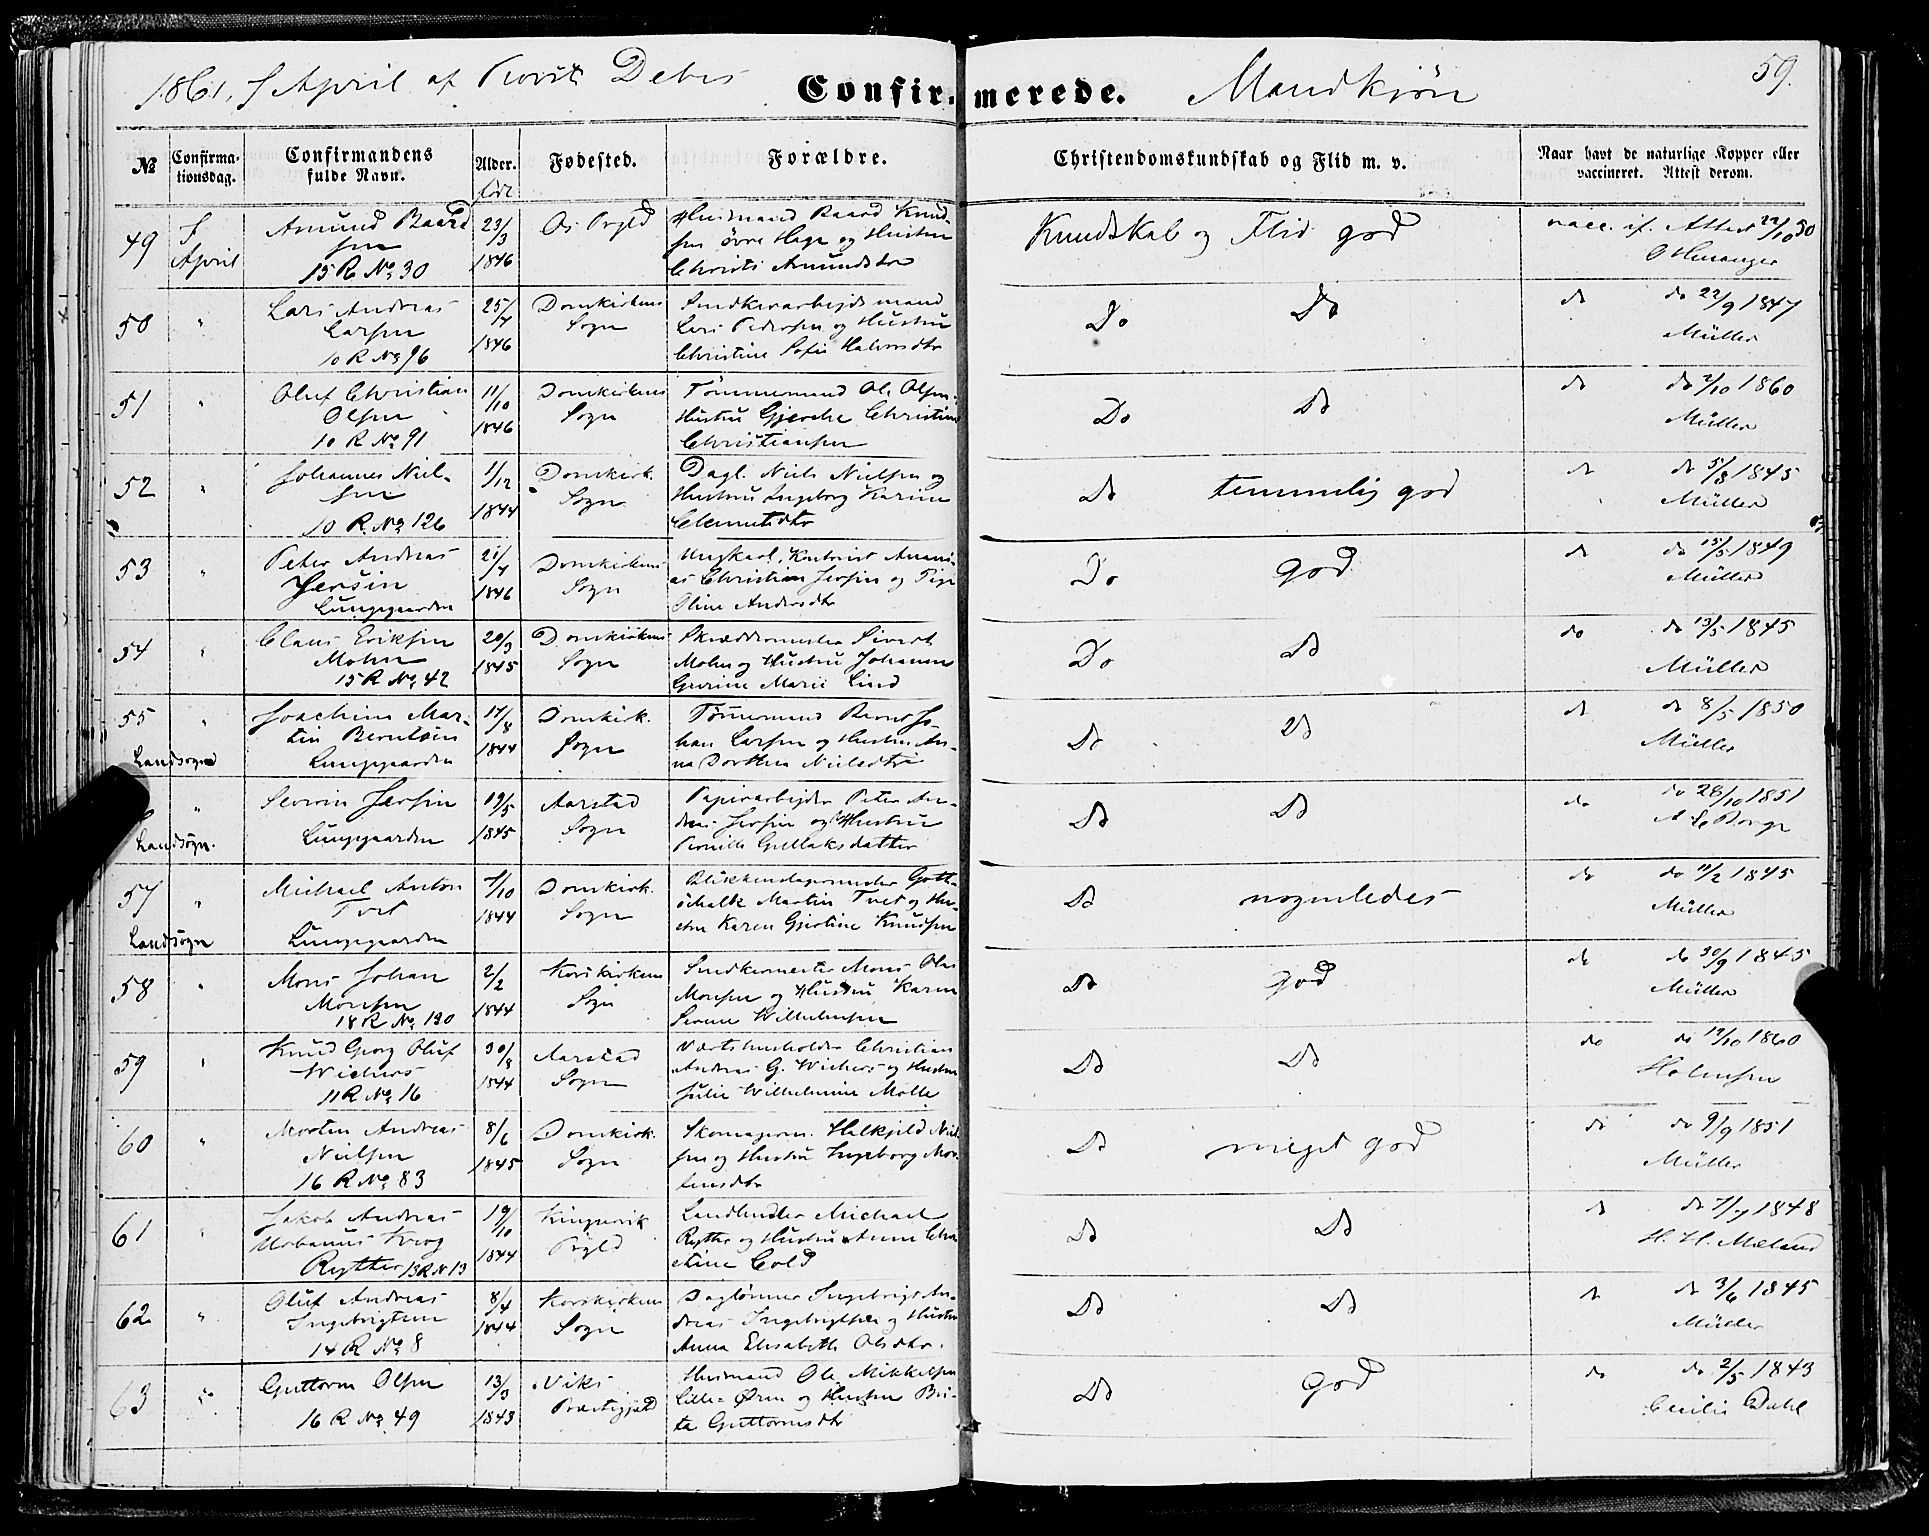 1861, 7 April af Provst Debes
Confirmerede. Mandkjøn 59.
№ Confirmationsdag. Confirmandens fulde Navn. Alder. født Fødested. Forældre. Christendomskundskab og Flid m. v. Naar havt de naturlige Kopper eller vaccineret. Attest derom.
49 7 April Amund Baard-
sen
15 R No 30
23/3 1846
Os Prgld
Husmand Baard Knud-
sen øvre Hage og Hustru
Christi Amundsdtr
Kundskab og Flid god
vacc. if. Attest 22/10 50
50 " Lars Andreas
Larsen
10 R No 96
25/4 1846
Domkirkens
Sogn
Snedkerarbejdsmand
Lars Pedersen og Hustru
Christine Sofie Halvorsdtr
Do Do
do do 22/9 1847
Müller
51 " Oluf Christian
Olsen
10 R No 91
11/10 1846
Domkirkens
Sogn
Tømmermand Ole Olsen
Hustru Gjerche Christine
Christiansen
Do Do
do do 2/10 1860
Müller
52 " Johannes Niel-
sen
10 R No 126
1/12 1844
Domkirk.
Sogn
Dagl. Niels Nielsen og
Hustru Ingeborg Karine
Clemetsdtr
Do temmelig god
do do 5/8 1845
Müller
53 " Peter Andreas
Jersin
Lungegaarden
21/4 1846
Domkirkens
Sogn
Ungkarl, Kontorist Anani-
as Christian Jersin og Pige
Oline Andersdtr
Do god
do do 15/5 1849
Müller
54 " Claus Eriksen
Mohn
15 R No 42
20/3 1845
Domkirkens
Sogn
Skræddermester Sivert
Mohn og Hustru Johanne
Gurine Marie Lind
Do Do
do do 13/5 1845
Müller
55 " Joachim Mar-
tin Berntsen
Landsogn Lungegaarden
17/8 1844
Domkirk.
Sogn
Tømmermand Bernt Jo-
han Larsen og Hustru An-
na Dorthea Nielsdtr
Do Do
do do 8/5 1850
Müller
" Severin Jersin
Landsogn. Lungegaarden
19/5 1845
Aarstad
Sogn
Papirarbejder Peter An-
dreas Jersin og Hustru
Pernille Gullaksdatter
Do Do
do do 28/10 1851
57 " Michael Anton
Tvet
Landsogn Lungegaarden
7/10 1844
Domkirk.
Sogn
Blikkenslagermester Gott-
schalk Martin Tvet og Hu-
stru Karen Gjertine Knudsen
Do nogenledes
do do 11/2 1845
Müller
58 " Mons Johan
Monsen
18 R No 130
2/2 1844
Korskirkens
Sogn
Snedkermester Mons Olai
Monsen og Hustru Karen
Serine Wilhelmsen
Do god
do do 30/9 1845
Müller
59 " Knud Georg Oluf
Wichers
11 R No 16
30/8 1844
Aarstad
Sogn
Værtshusholder Christian
Andreas G. Wichers og Hustru
Julie Wilhelmine Molle
Do Do
do do 12/10 1860
Holmsen
60 " Morten Andreas
Nielsen
16 R No 83
8/6 1845
Domkirk.
Sogn
Skomagerm. Halkjeld Niel-
sen og Hustru Ingeborg Mor-
tensdtr
Do meget god
do do 9/9 1851
Müller
61 " Jakob Andreas
Mohanus Krog
Rytter 13 R N 13
19/10 1844
Kingservik
Prgld
Landhandler Michael
Rytter og Hustru Anne Chri-
stine Cold
Do Do
do do 7/7 1848
H. H. Mæland
62 " Oluf Andreas
Ingebrigtsen
14 R No 8
8/4 1844
Korskirkens
Sogn
Daglønner Ingebrigt An-
dreas Ingebrigtsen og Hustru
Anna Elisabeth Olsdtr.
Do Do
do do 3/6 1845
Müller
63 " Guttorm Olsen
16 R No 49
13/3 1843
Viks
Præstegjæld
Husmand Ole Mikkelsen
Lille-Øren og Hustru Bri-
ta Guttormsdtr
Do god
do do 2/5 1843
Cecilie Dahl